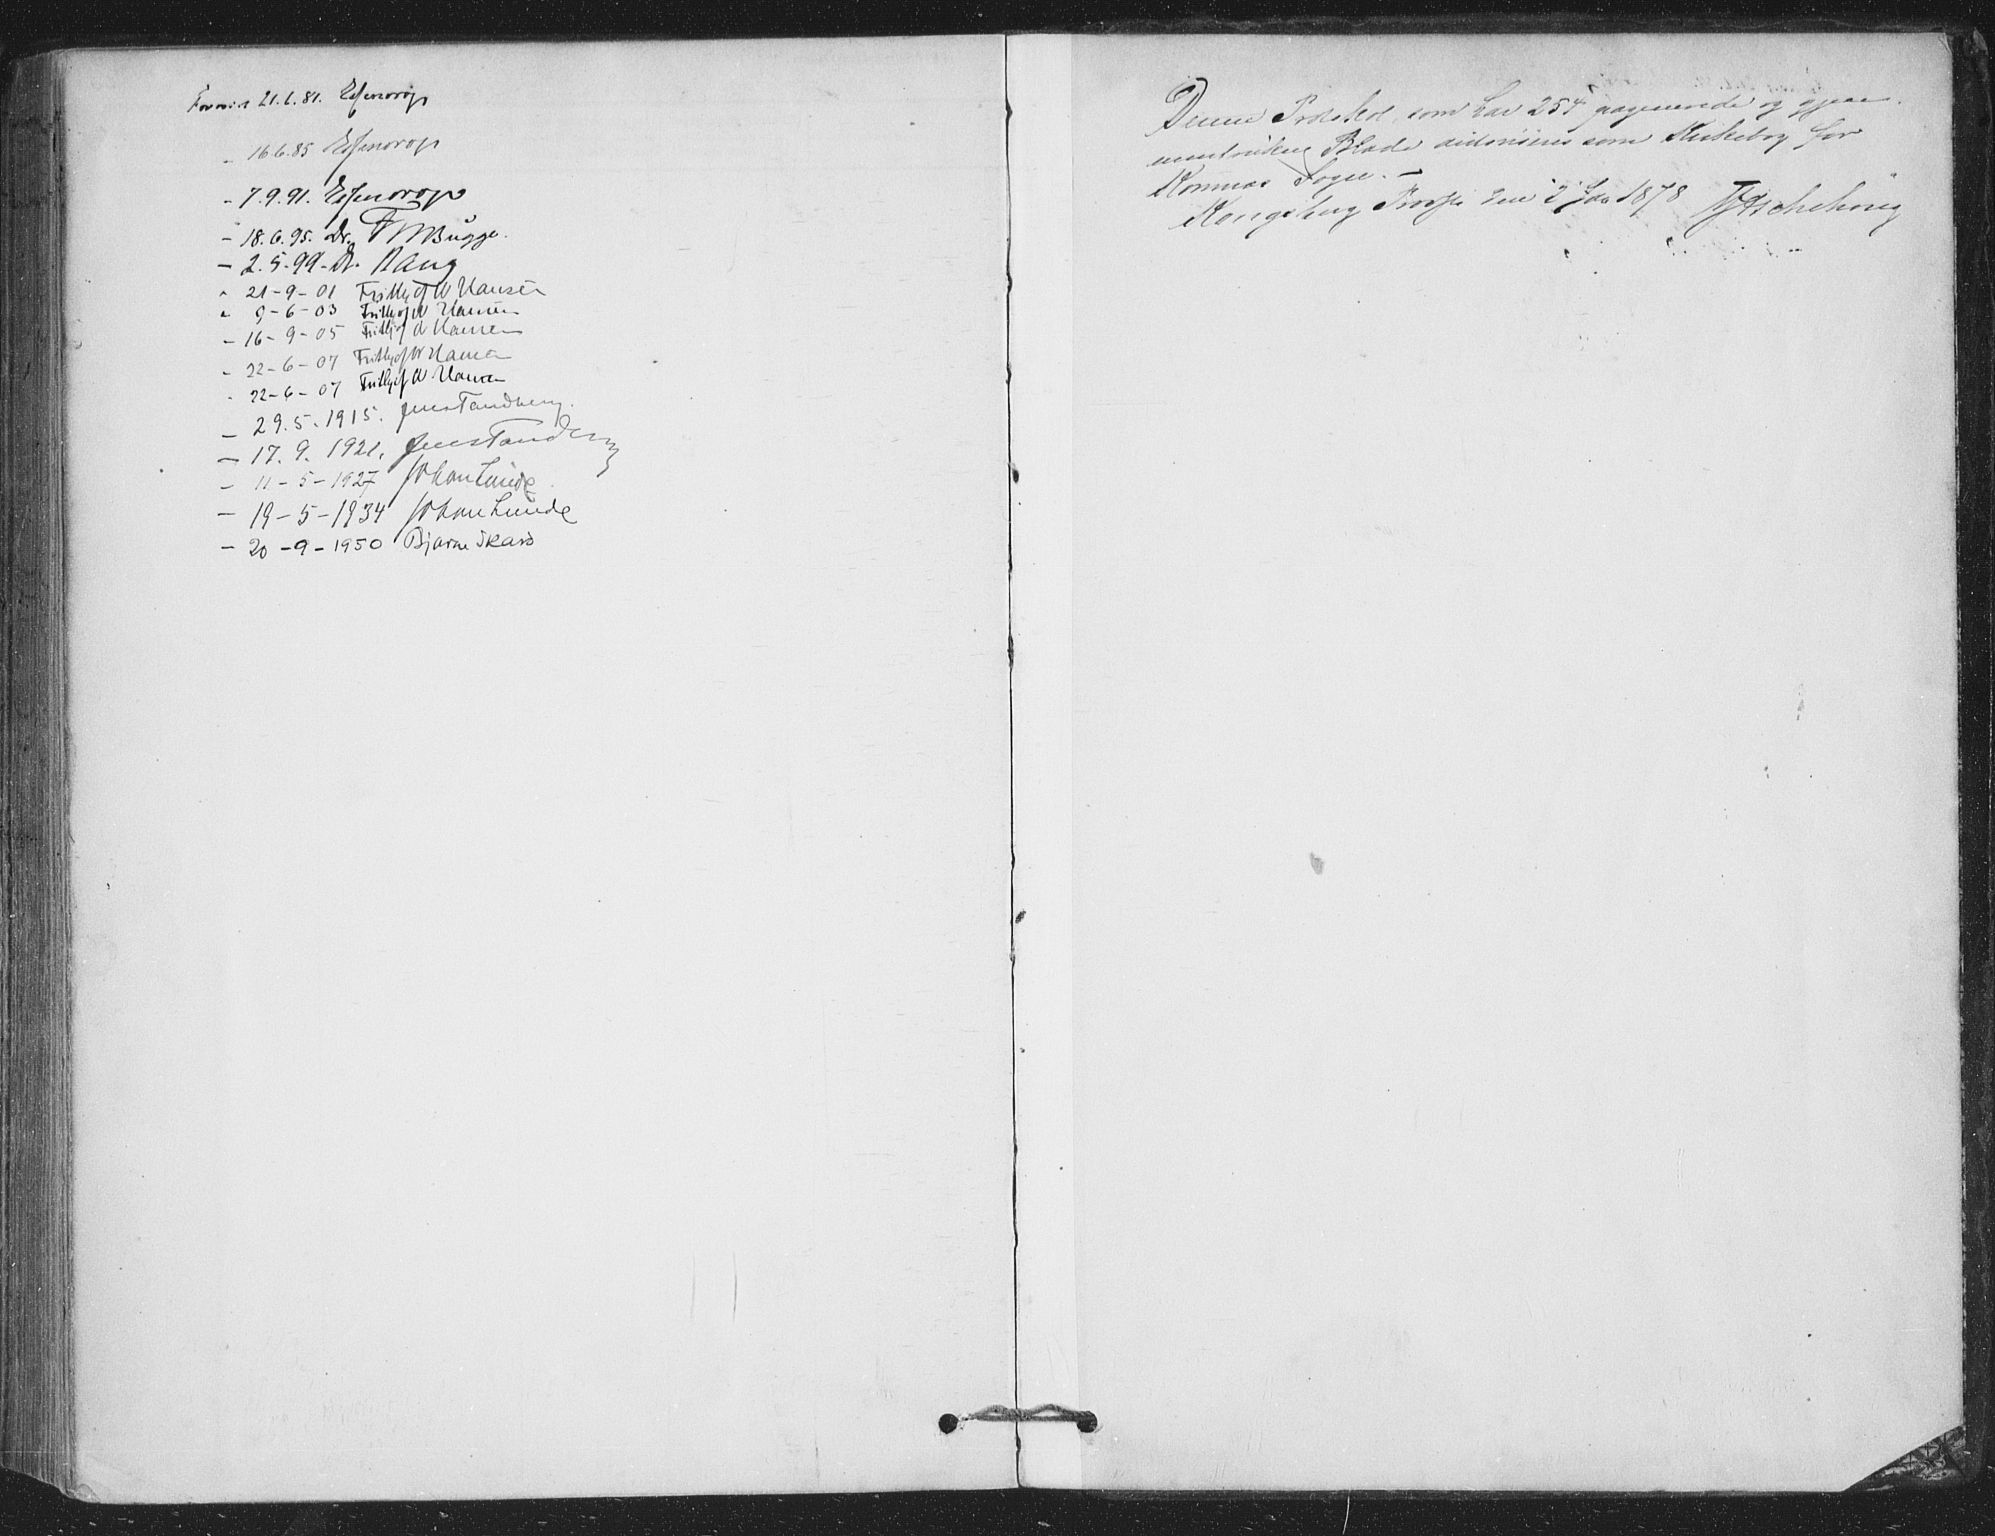 Forevist 21.6.81. Essendrop
- 16.6.85 Essendrop
- 7.9.91. Essendrop
- 18.6.95. Dr. F W Bugge.
- 2.5.99. Dr. Bang
" 21-9-01 Frithjof W Hansen
" 9-6-03 Frithjof W Hansen
- 16-9-05 Frithjof W Hansen
- 22-6-07 Frithjof W Hansen
- 22-6-07 Frithjof W. Hansen
- 29.5.1915. Jens Tandberg.
- 17.9.1921, Jens Tandberg
- 11-5-1927 Johan Lunde.
- 19-5-1934 Johan Lunde
- 20-9-1950 Bjarne Skard
Denne Protokol, som har 254 paginerede og gjen-
nemtrukne Blade autoriseres som Kirkebog for
Komnes Sogn. -
Kongsberg Provsti den 2 Jan 1878 Aschehoug